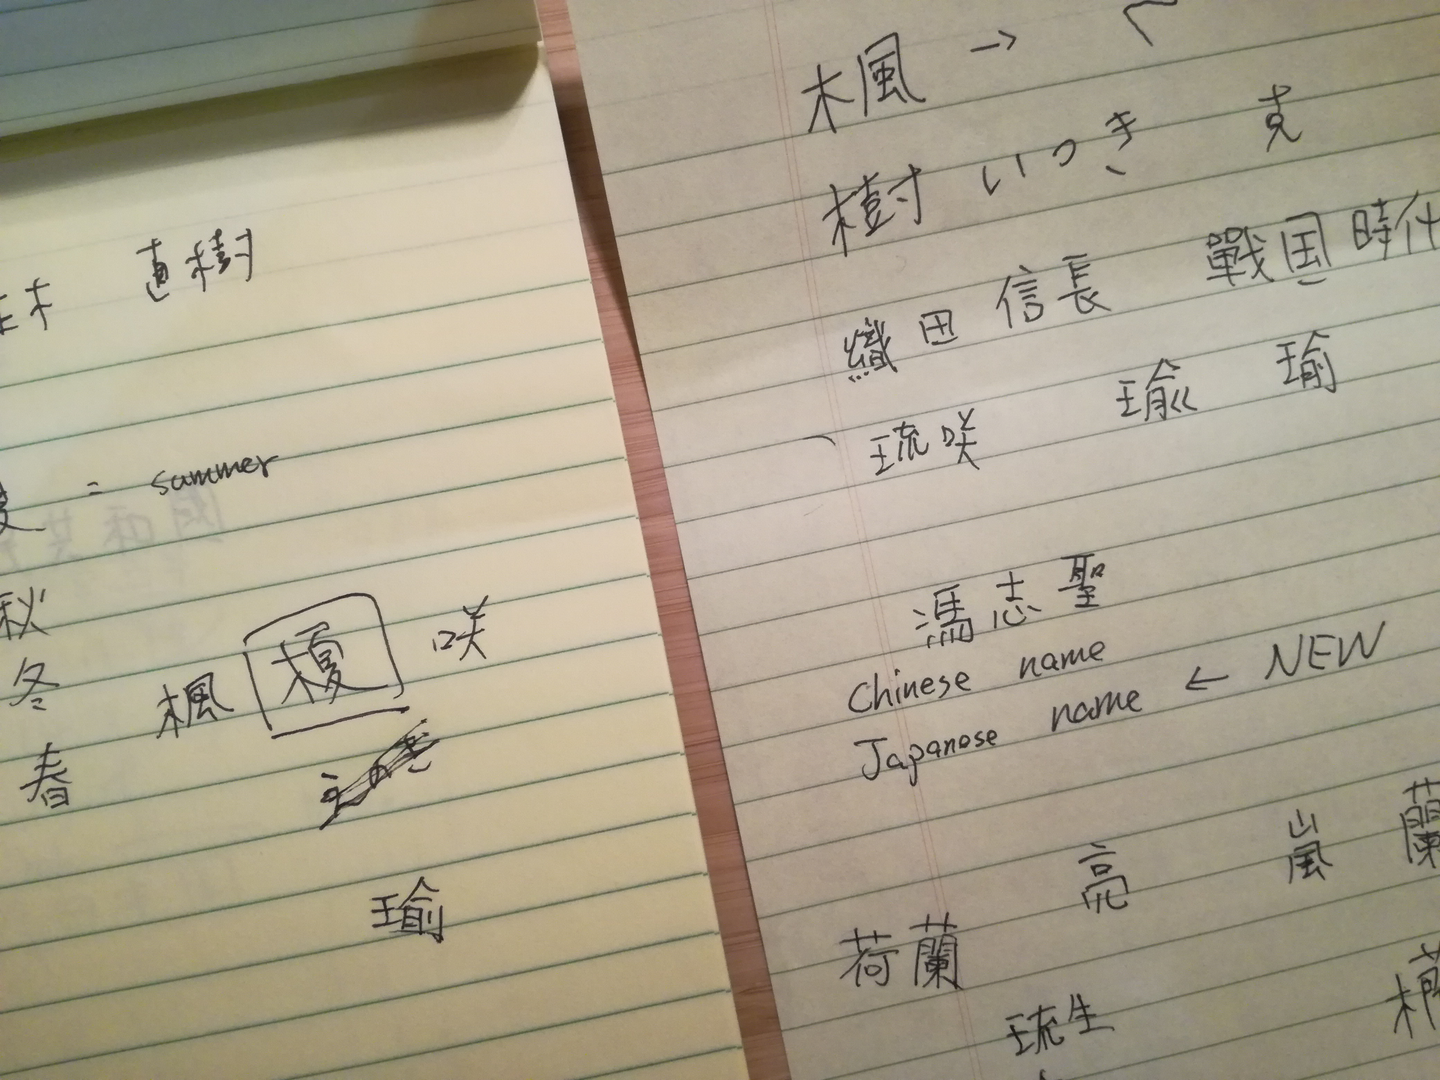 直樹
= summer
秋
冬
楓 榎 咲
春
えのき
瑜
楓 →
樹 いつき 克
織田 信長 戰国時代
琉咲 瑜 瑜
馮志聖
Chinese name
Japanese name ← NEW
亮 嵐 蘭
荷蘭
琉生